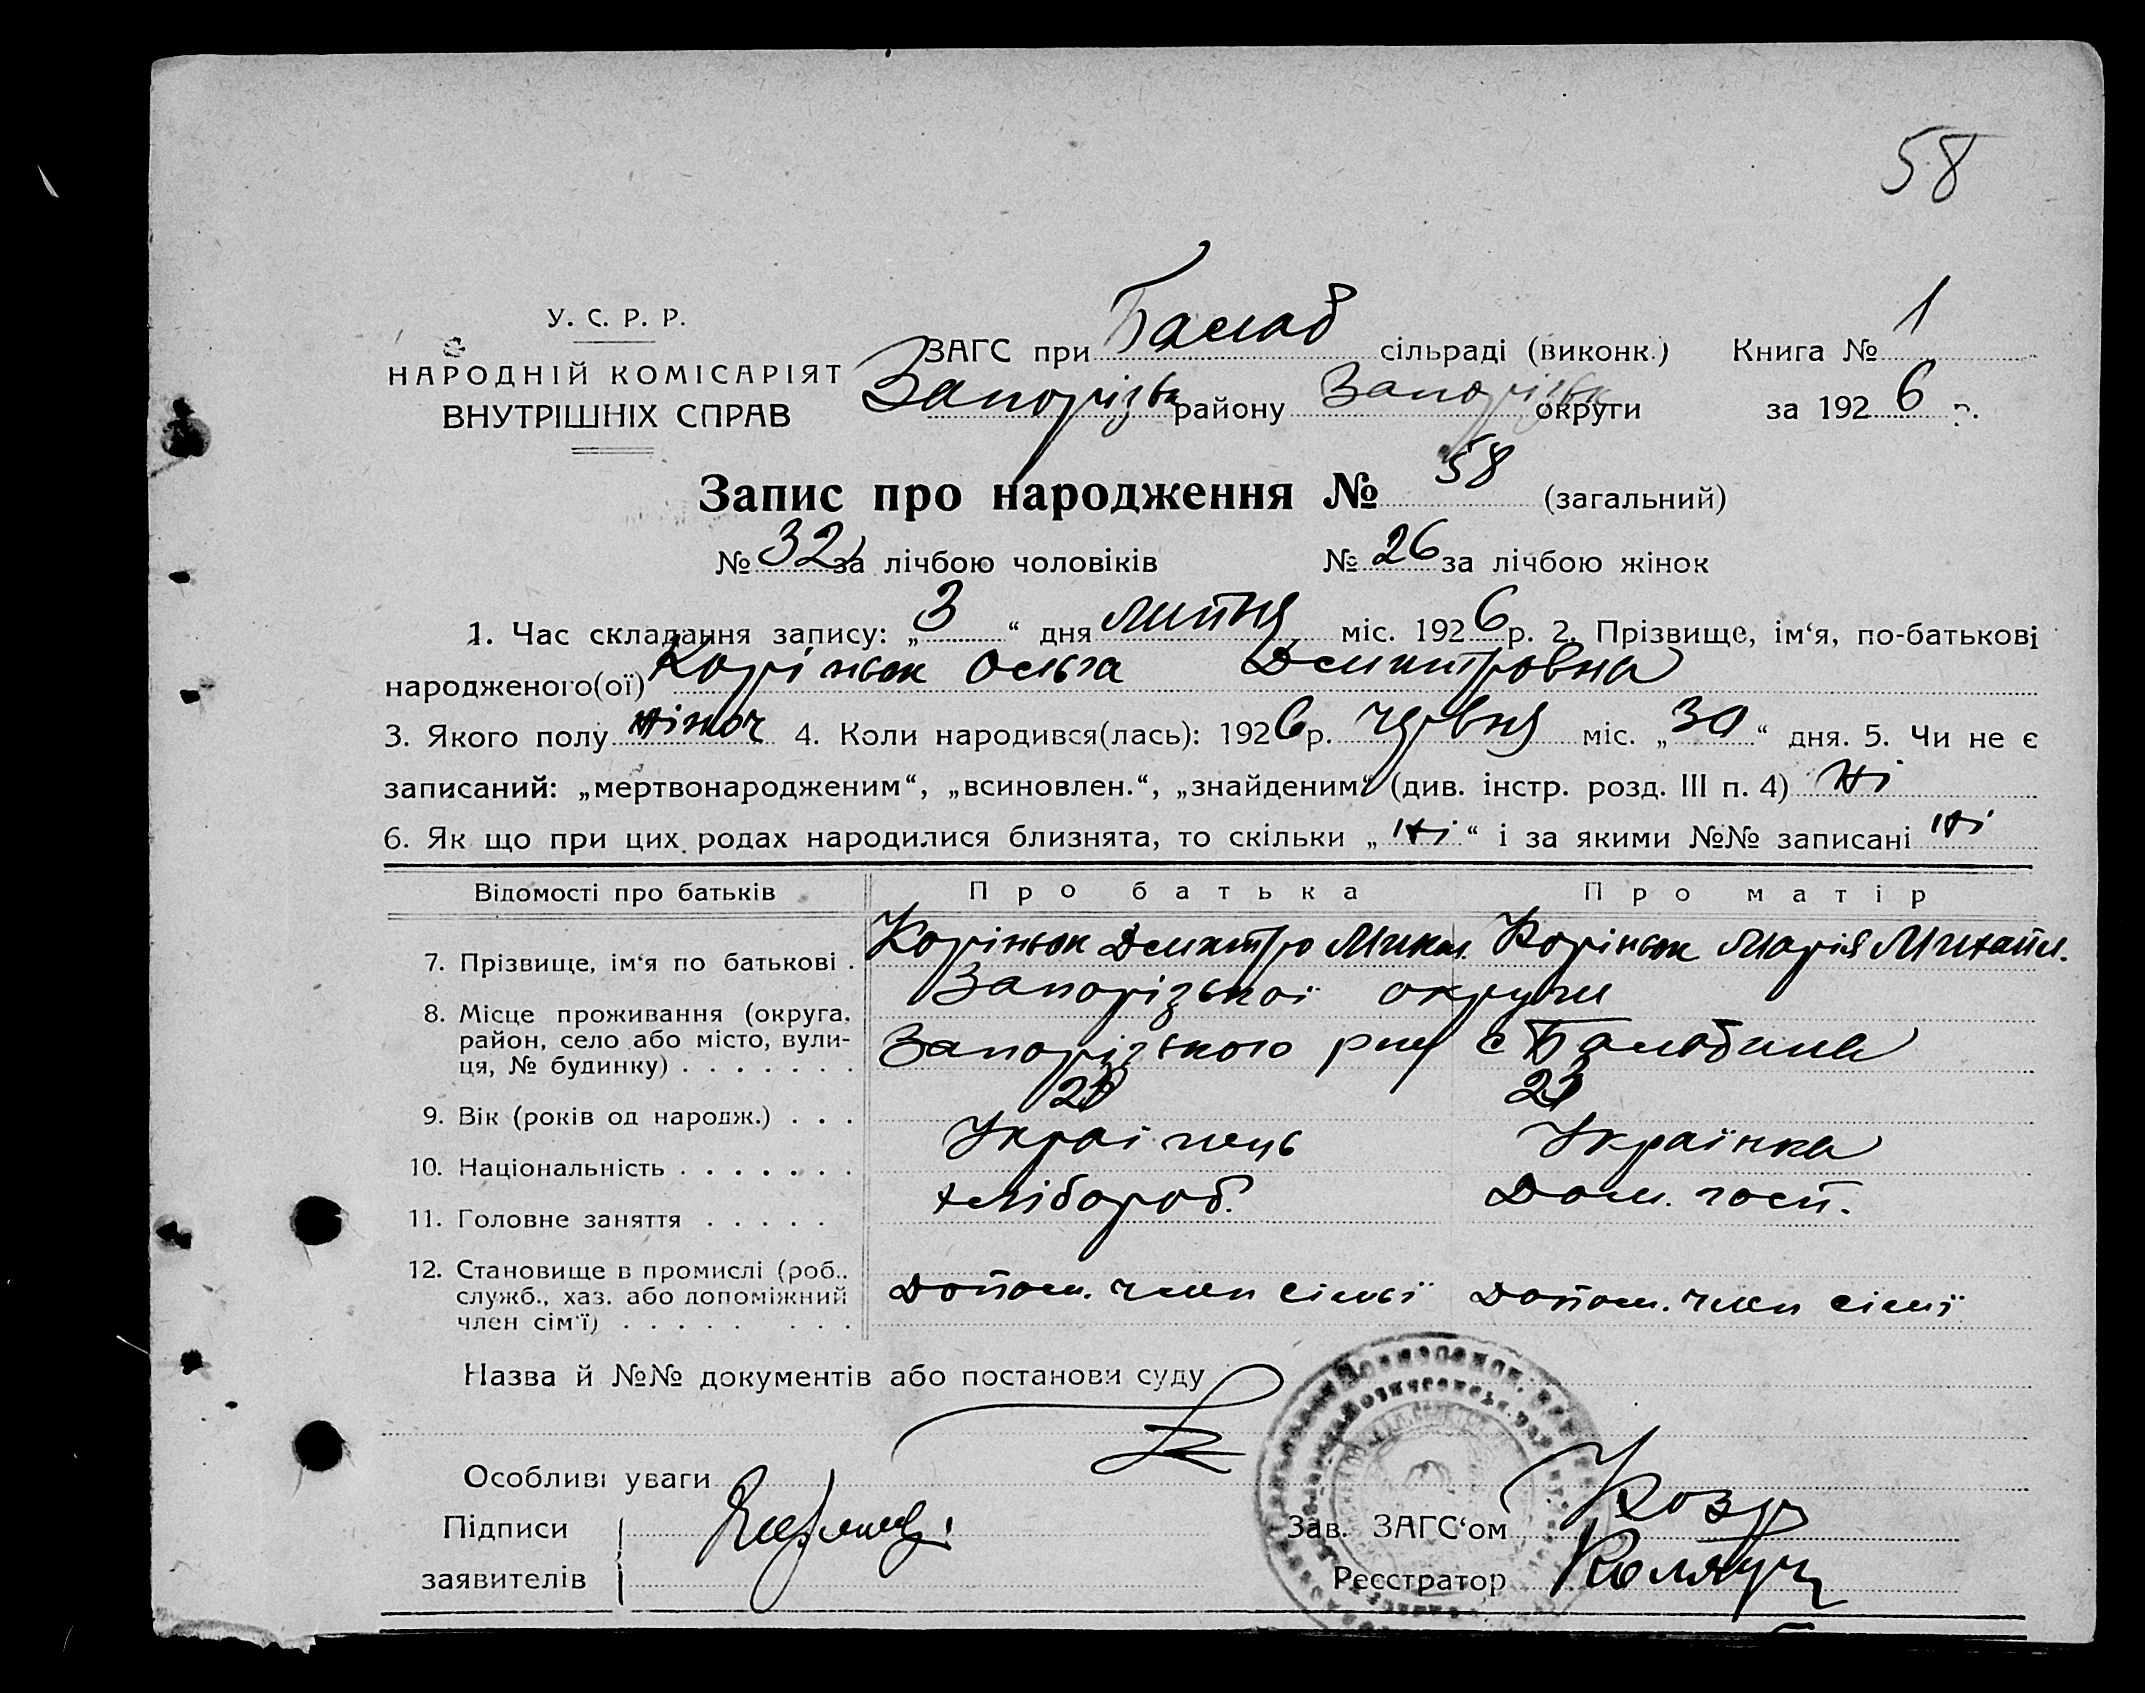 58
У. С. Р. Р.
НАРОДНІЙ КОМІСАРІЯТ
ВНУТРІШНІХ СПРАВ
ЗАГС при сільраді (виконк.) Книга № 1
Запорізьк району Запорізьк округи за 1926 р.
Запис про народження № 58 (загальний)
№ 32 за лічбою чоловіків № 26 за лічбою жінок
1. Час складання запису: „3“ дня липня міс. 1926 р. 2. Прізвище, ім‘я, по-батькові
народженого(ої) Корінюк Ольга Демитровна
3. Якого полу жіноч 4. Коли народився(лась): 1926 р. червня міс. „30“ дня. 5. Чи не є
записаний: „мертвонародженим“, „всиновлен.“, „знайденим“ (див. інстр. розд. III п. 4) Ні
6. Як що при цих родах народилися близнята, то скільки „Ні“ і за якими №№ записані Ні
Відомості про батьків Про батька Про матір
7. Прізвище, ім‘я по батькові . Корінюк Демитро Микол. Корінюк Марія Михайл.
8. Місце проживання (округа, Запорізької округи
район, село або місто, вули- Запорізького р-ну с Бальбине
ця, № будинку) . . . . . . .
9. Вік (років од народж.) . . .
10. Національність . . . . . . . Українець Українка
11. Головне заняття . . . . . хлібороб. Дом. госп.
12. Становище в промислі (роб.,
служб., хаз. або допоміжний Допом. член сімьї Допом. член сімї
член сім‘ї) . . . . . . . .
Назва й №№ документів або постанови суду
Особливі уваги
Підписи Зав. ЗАГС‘ом
заявителів Реєстратор